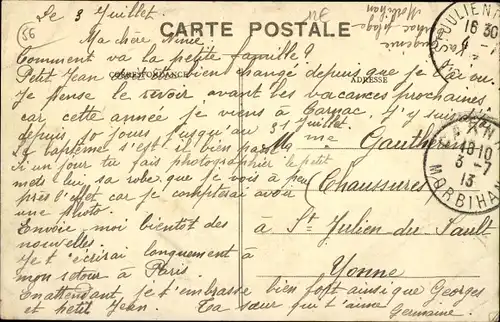 56
Le 3 Juillet.
CARTE POSTALE
Ma chère Ninie.
Comment va la petite famille?
CORRESPONDANCE
ADRESSE
Petit Jean bien changé depuis que je ai vu
Je pense le revoir avant les vacances prochaines,
car cette année je viens à Carnac, j'y suis
depuis 10 jours jusqu'au 31 juillet
Le baptême s'est il bien passé
Si un jour tu fais photographier le petit
mets lui sa robe que je vois à peu
près l'effet car je compterai avoir
une photo.
Envoie moi bientôt des
nouvelles.
Je t'écrirai longuement à
mon retour à Paris.
En attendant je t'embrasse bien fort ainsi que Georges
et petit Jean. Ta sœur qui t'aime
Germaine.
Mme Gautherin
(Chaussures)
à St Julien-du-Sault
Yonne
Carnac plage
Morbihan
ST JULIEN
16 30
4 -7
18 10
3 -7
13
MORBIHAN